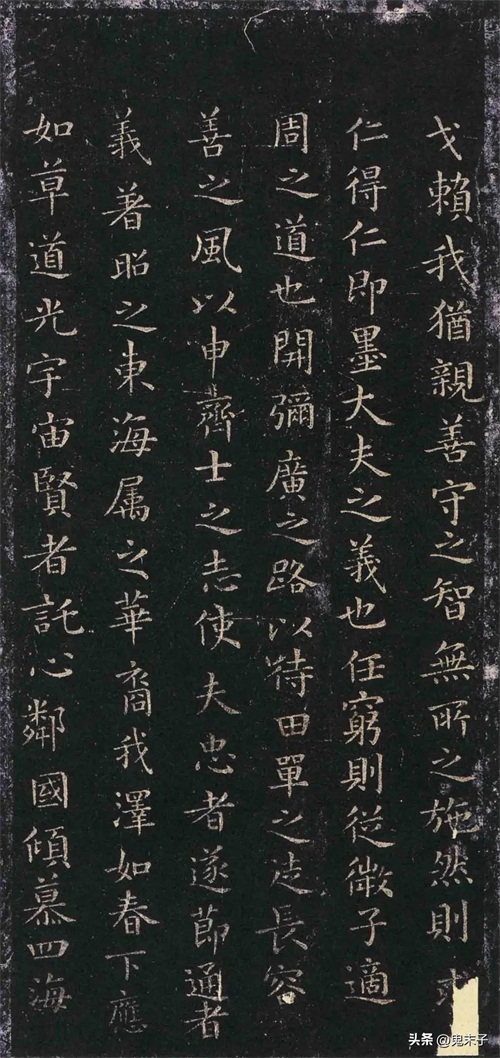 戈賴我猶親善守之智無所之施然則求
仁得仁即墨大夫之義也任窮則從微子適
周之道也開彌廣之路以待田單之徒長容
善之風以申齊士之志使夫忠者遂節通者
義著昭之東海属之華裔我澤如春下應
如草道光宇宙賢者託心鄰國傾慕四海
头条 @鬼末子